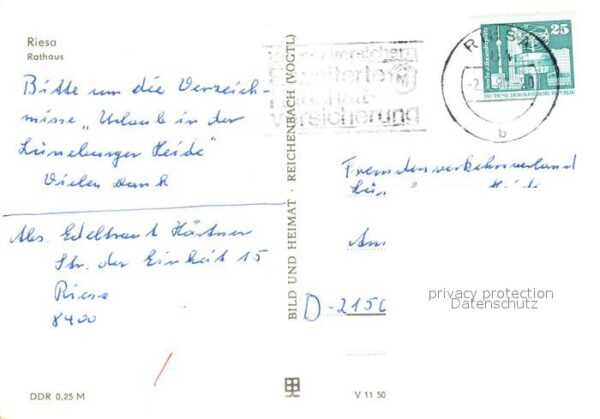 Riesa
Rathaus
Bitte um die Verzeich-
nisse „Urlaub in der
Lüneburger Heide"
Vielen Dank
Abs. Edeltraut Härtner
Str. der Einheit 15
Riesa
8400
DDR 0,25 M
BILD UND HEIMAT · REICHENBACH (VOGTL)
versichern
erweiterte
versicherung
RIESA
b
25
DEUTSCHE DEMOKRATISCHE REPUBLIK
Fremdenverkehrsverband
D-2150
privacy protection
Datenschutz
V 11 50